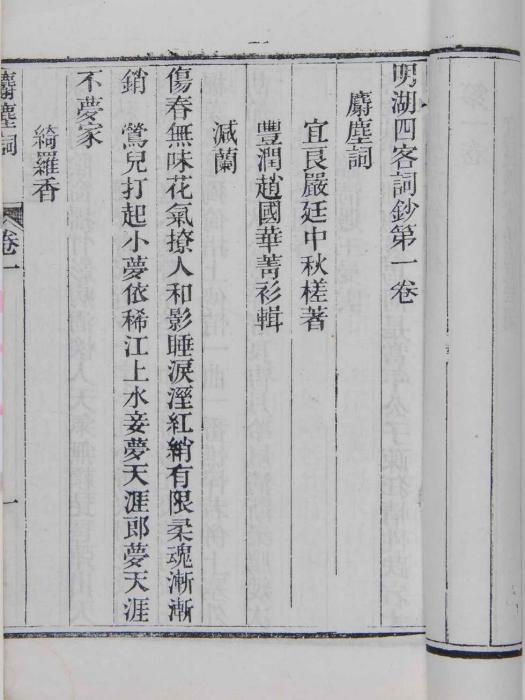 明湖四客詞鈔第一卷
麝塵詞
宜良嚴廷中秋槎著
豐潤趙國華菁衫輯
減蘭
傷春無味花氣撩人和影睡淚溼紅綃有限柔魂漸漸
銷　鶯兒打起小夢依稀江上水妾夢天涯郎夢天涯
不夢家
綺羅香
麝塵詞
卷一
一